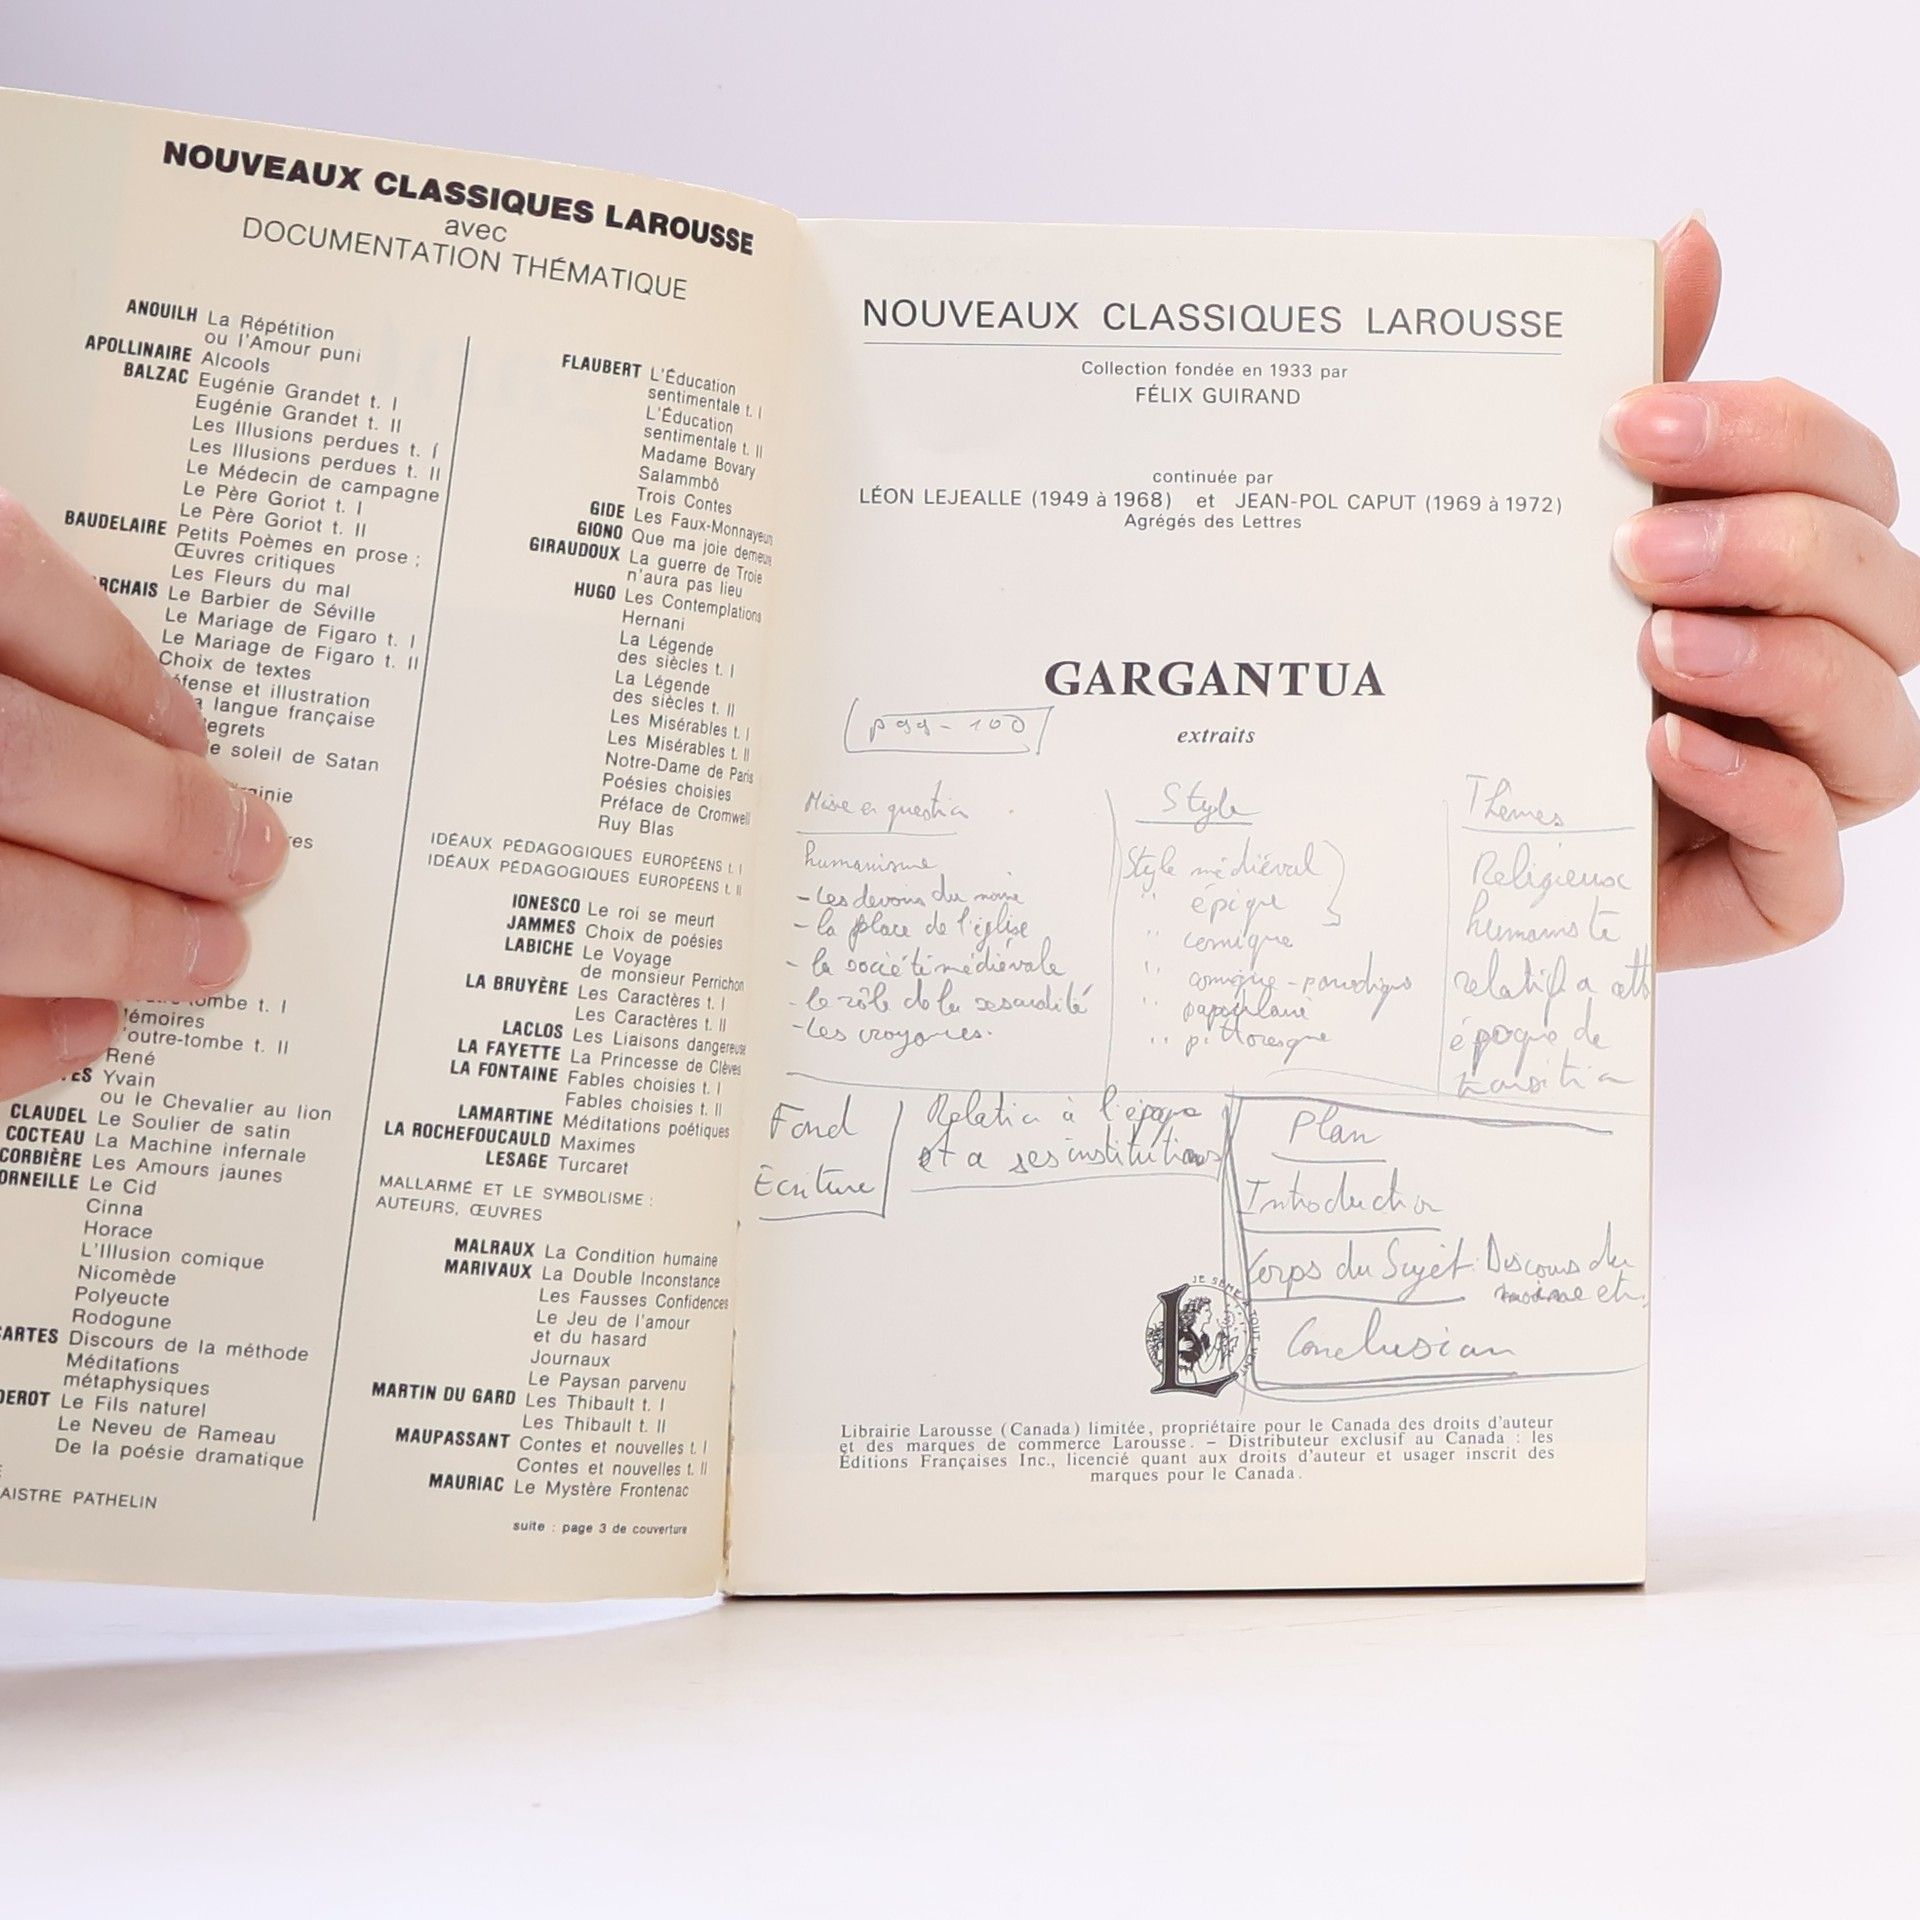 NOUVEAUX CLASSIQUES LAROUSSE
avec
DOCUMENTATION THÉMATIQUE
ANOUILH La Répétition
ou l'Amour puni
APOLLINAIRE Alcools
BALZAC Eugénie Grandet t. I
Eugénie Grandet t. II
Les Illusions perdues t. I
Les Illusions perdues t. II
Le Médecin de campagne
Le Père Goriot t. I
Le Père Goriot t. II
BAUDELAIRE Petits Poèmes en prose ;
Œuvres critiques
Les Fleurs du mal
RCHAIS Le Barbier de Séville
Le Mariage de Figaro t. I
Le Mariage de Figaro t. II
Choix de textes
fense et illustration
langue française
egrets
e soleil de Satan
ginie
res
ombe t. I
émoires
'outre-tombe t. II
René
ES Yvain
ou le Chevalier au lion
CLAUDEL Le Soulier de satin
COCTEAU La Machine infernale
CORBIÈRE Les Amours jaunes
ORNEILLE Le Cid
Cinna
Horace
L'Illusion comique
Nicomède
Polyeucte
Rodogune
CARTES Discours de la méthode
Méditations
métaphysiques
DEROT Le Fils naturel
Le Neveu de Rameau
De la poésie dramatique
AISTRE PATHELIN
FLAUBERT L'Éducation
sentimentale t. I
L'Éducation
sentimentale t. II
Madame Bovary
Salammbô
Trois Contes
GIDE Les Faux-Monnayeurs
GIONO Que ma joie demeure
GIRAUDOUX La guerre de Troie
n'aura pas lieu
HUGO Les Contemplations
Hernani
La Légende
des siècles t. I
La Légende
des siècles t. II
Les Misérables t. I
Les Misérables t. II
Notre-Dame de Paris
Poésies choisies
Préface de Cromwell
Ruy Blas
IDÉAUX PÉDAGOGIQUES EUROPÉENS t. I
IDÉAUX PÉDAGOGIQUES EUROPÉENS t. II
IONESCO Le roi se meurt
JAMMES Choix de poésies
LABICHE Le Voyage
de monsieur Perrichon
LA BRUYÈRE Les Caractères t. I
Les Caractères t. II
LACLOS Les Liaisons dangereuses
LA FAYETTE La Princesse de Clèves
LA FONTAINE Fables choisies t. I
Fables choisies t. II
LAMARTINE Méditations poétiques
LA ROCHEFOUCAULD Maximes
LESAGE Turcaret
MALLARMÉ ET LE SYMBOLISME :
AUTEURS, ŒUVRES
MALRAUX La Condition humaine
MARIVAUX La Double Inconstance
Les Fausses Confidences
Le Jeu de l'amour
et du hasard
Journaux
Le Paysan parvenu
MARTIN DU GARD Les Thibault t. I
Les Thibault t. II
MAUPASSANT Contes et nouvelles t. I
Contes et nouvelles t. II
MAURIAC Le Mystère Frontenac
suite : page 3 de couverture
NOUVEAUX CLASSIQUES LAROUSSE
Collection fondée en 1933 par
FÉLIX GUIRAND
continuée par
LÉON LEJEALLE (1949 à 1968) et JEAN-POL CAPUT (1969 à 1972)
Agrégés des Lettres
GARGANTUA
extraits
p 99 - 100
Mise en question
humanisme
- Les devoirs du moine
- la place de l'église
- la société médiévale
- le rôle de la
- Les croyances.
Style
Style médiéval
" épique
" comique
" comique - parodique
" populaire
" pittoresque
Themes
Religieux
humaniste
relatif a cette
époque de
transition
Fond
Ecriture
Relation à l'époque
et a ses institutions
Plan
Introduction
Corps du Sujet : Discours du
moine et
Conclusion
JE SÈME À TOUT VENT
Librairie Larousse (Canada) limitée, propriétaire pour le Canada des droits d'auteur
et des marques de commerce Larousse. – Distributeur exclusif au Canada : les
Éditions Françaises Inc., licencié quant aux droits d'auteur et usager inscrit des
marques pour le Canada.